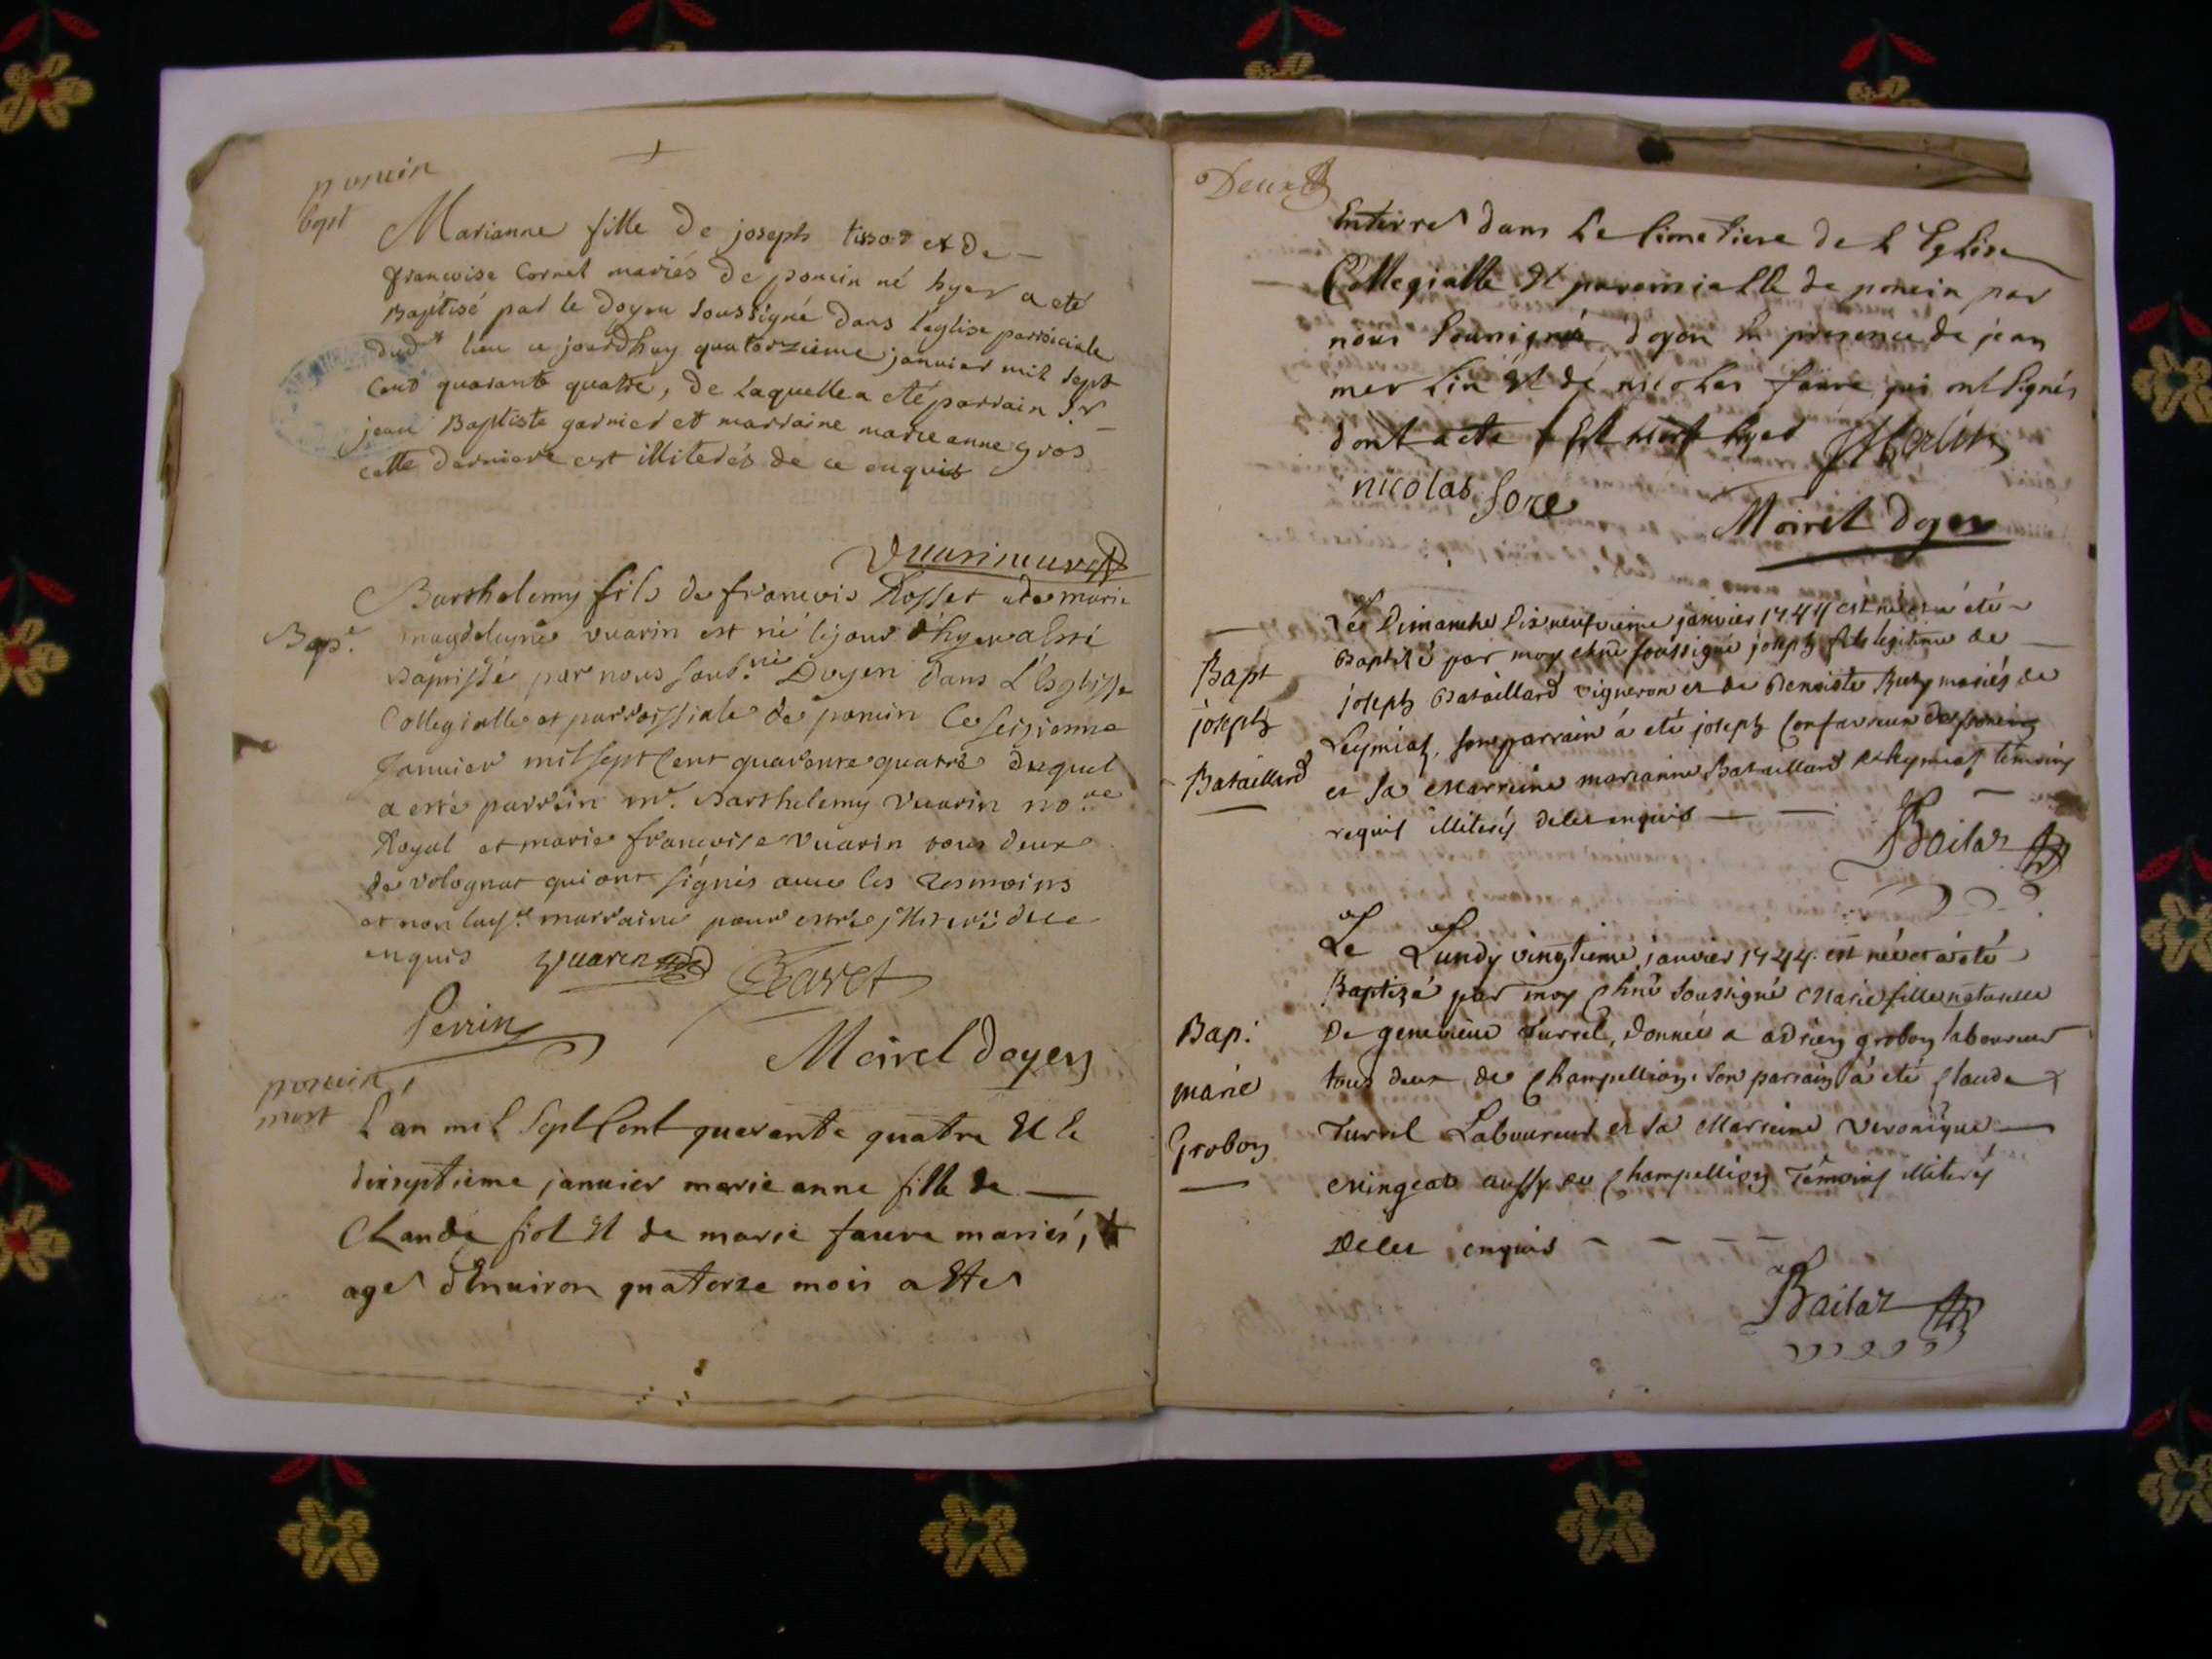 poncin
bapt
Marianne fille de joseph tissot et de
francoise Cornet mariés de poncin né hyer a eté
Baptisé par le doyen soussigné dans l'eglise parroiciale
dud.t lieu ce jourdhuy quatorzieme janvier mil sept
cent quarante quatre, de laquelle a eté parrain Sr
jean Baptiste garnier et marraine marie anne gros
cette derniere est illiterés de ce enquis
Bap.e
Barthelemy fils de francois Rosset et de marie
magdeleyne vuarin est né le jour d'hyer a esté
Baptissé par nous sous.né Doyen dans L'Esglisse
Collegialle et parroissiale de poncin le seizieme
Janvier mil sept Cent quarante quatre duquel
a esté parrein mr. Barthelemy Vuarin no.re
Royal et marie francoise Vuarin tous deux
de volognat qui ont signés avec les tesmoins
et non lad.e marraine pour estre jlliteré de ce
enquis vuarin Ravet
Perrin
Moirel doyen
poncin
mort
L an mil Sept Cent quarante quatre Et le
dixseptieme janvier marie anne fille de
Claude fiol Et de marie faure mariés,
age d'Enuiron quatorze mois a Ete
Deux
Enterré dans Le Cimetiere de L Eglise
Collegialle Et paroissialle de poncin par
nous soussigné doyen En presence de jean
merlin Et de nicolas faure qui ont signés
dont acte Est mort hyer JMerlin
nicolas fore
Moirel doyen
Bapt
joseph
Bataillard
Le Dimanche Dix neufvieme janvier 1744 est né et a été
Baptizé par moy chne soussigné joseph fils legitime de
joseph Bataillard vigneron et de Benoiste Ruty mariés de
Leymiat, son parrain á eté joseph Confavreux de poncin
et sa Marraine marianne Bataillard de Leymiat témoins
requis illiterés de les enquis
Bailat
Bap.
marie
Grobon
Le Lundy vingtieme janvier 1744. est née et a été
Baptizé par moy Chne soussigné Marie fille naturelle
De genevieve Turrel, donnée a adrien grobon laboureur
tous deux de Champellion, son parrain á eté Claude
Turrel Laboureur et sa Marraine Veronique
Mingeat aussy de Champellion Témoins illiterés
De les enquis
Bailat